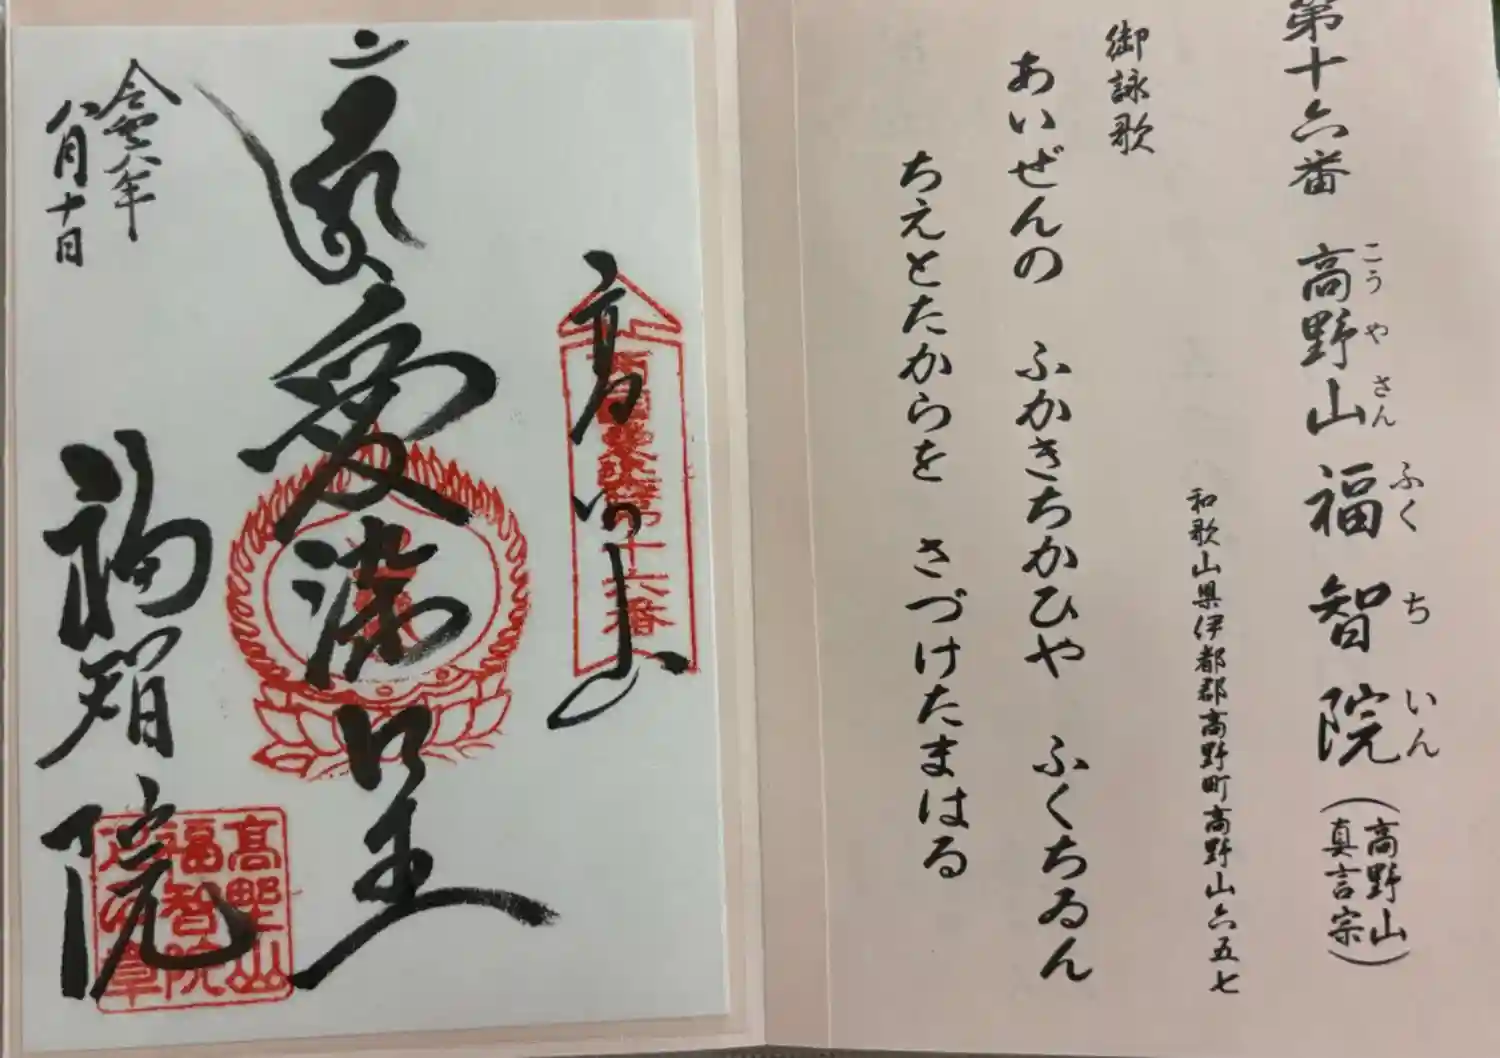 第十六番 高野山 福智院 (高野山真言宗)
こうやさん ふくちいん
和歌山県伊都郡高野町高野山六五七
御詠歌
あいぜんの ふかきちかひや ふくちゐん
ちえとたからを さづけたまはる
高野山
西国愛染第十六番
愛染明王
福智院
令和六年
八月十日
高野山
福智院